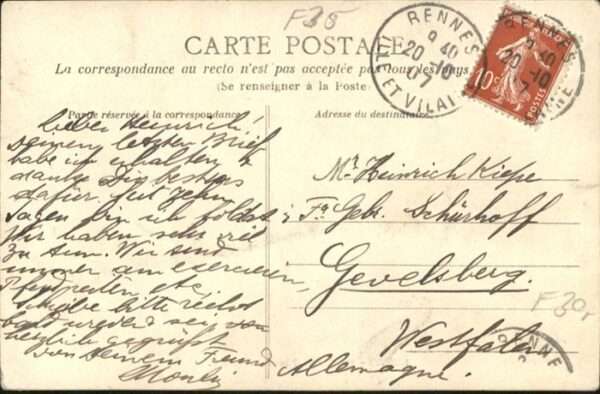 F35
CARTE POSTALE
La correspondance au recto n'est pas acceptée par tous les pays
(Se renseigner à la Poste)
RENNES
9 40
20 -10
07
ILLE ET VILAINE
RENNES
9 40
20 -10
7
10c
POSTES
Partie réservée à la correspondance
Adresse du destinataire
Lieber Heinrich!
Deinen letzten Brief
habe ich erhalten &
danke Dir bestens
dafür. Seit zehn
Tagen bin ich Soldat
Wir haben sehr viel
zu tun. Wir sind
immer am exercieren,
etc.
Schreibe bitte recht
bald wieder & sei von
herzlich gegrüsst
von Deinem Freund
Mr. Heinrich Kiepe
Fa. Gebr. Schürhoff
Gevelsberg.
Westfalen
Allemagne.
F30,